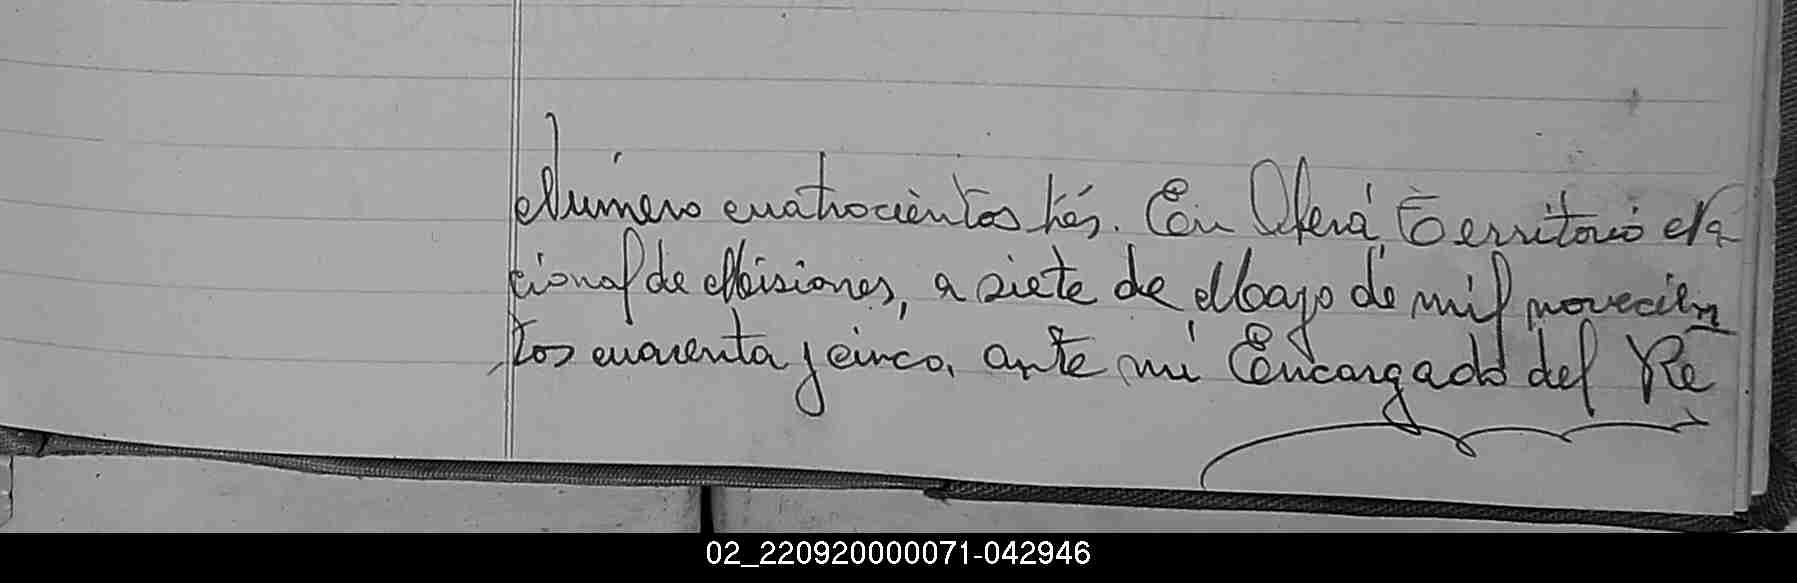 Número cuatrocientos trés. En Oberá, Territorio Na
cional de Misiones, a siete de Mayo de mil novecien
tos cuarenta y cinco, ante mi Encargado del Re
02_220920000071-042946